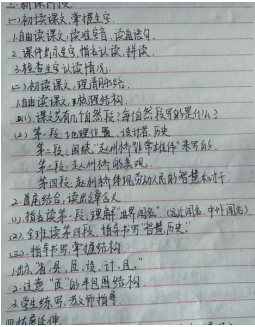 二、新课学习
(一)初读课文,掌握生字.
1.自由读课文,读准字音,读通语句.
2.课件出示生字,指名认读,拼读.
3.检查生字认读情况.
(二)初读课文,理清脉络.
1.自由读课文,梳理结构.
(1)课文共有几个自然段,每个自然段写的是什么?
(2)第一段:地理位置、设计者、历史
第二段:围绕"赵州桥非常雄伟"来写的.
第三段:赵州桥的美观.
第四段:赵州桥体现劳动人民的智慧和才干.
2.首尾结合,读出文章含义
(1)指名读第一段,理解"世界闻名".(远近闻名、中外闻名)
(2)全班读第四段,指导书写"智慧、历史"
(三)指导书写,掌握结构
1.出示:洨、县、匠、设、计、且、"
2.注意"匠"的半包围结构
3.学生练写,教师指导
四、拓展延伸